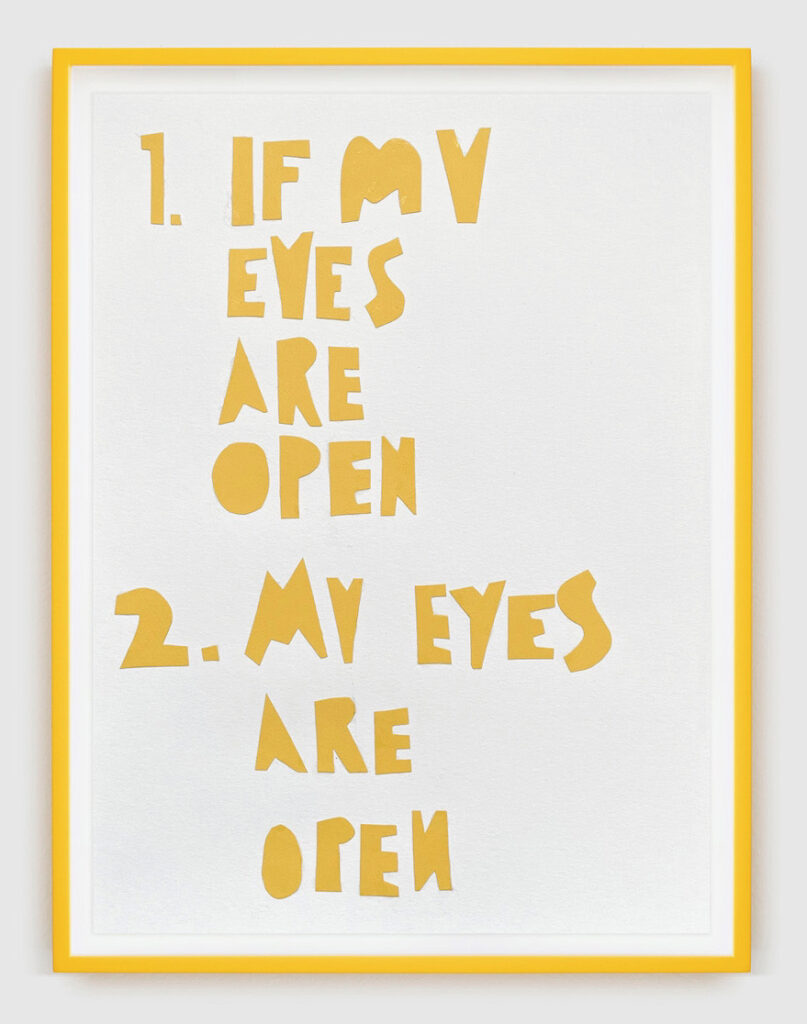 1. IF MY
EYES
ARE
OPEN
2. MY EYES
ARE
OPEN